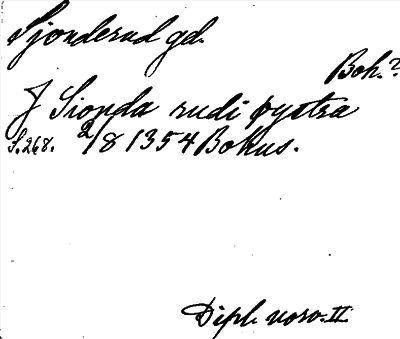 Sjonderud gd.
Boh.?
J Sionda rudi øystra
S. 268. 2/8 1354 Bokus.
Dipl. norv. II